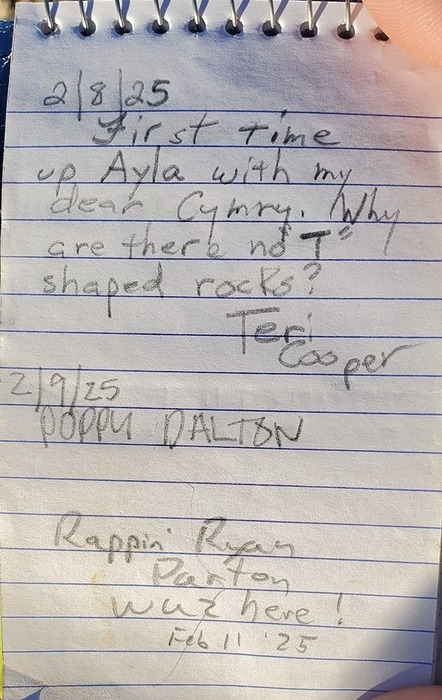 2/8/25
First time
up Ayla with my
dear Cymry. Why
are there no "T"
shaped rocks?
Teri
Cooper
2/9/25
POPPY DALTON
Rappin' Ryan
Parton
wuz here!
Feb 11 '25